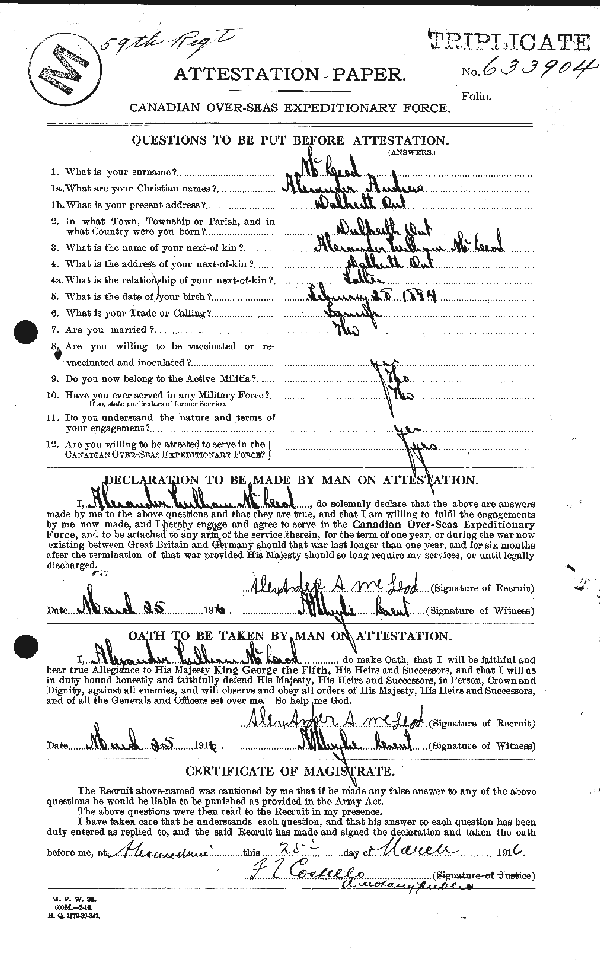 59th Regt
TRIPLICATE
M
ATTESTATION PAPER.
No. 633904
Folio.
CANADIAN OVER-SEAS EXPEDITIONARY FORCE.
QUESTIONS TO BE PUT BEFORE ATTESTATION.
(ANSWERS.)
1. What is your surname? McLeod
1a. What are your Christian names? Alexander Andrew
1b. What is your present address? Dalkeith Ont
2. In what Town, Township or Parish, and in
what Country were you born? Dalkeith Ont
3. What is the name of your next-of kin? Alexander William McLeod
4. What is the address of your next-of-kin? Dalkeith Ont
4a. What is the relationship of your next-of-kin? Father
5. What is the date of your birth? February 28 1894
6. What is your Trade or Calling?
7. Are you married? No
8. Are you willing to be vaccinated or re-
vaccinated and inoculated? yes
9. Do you now belong to the Active Militia? No
10. Have you ever served in any Military Force? No
If so, state particulars of former Service.
11. Do you understand the nature and terms of
your engagement? yes
12. Are you willing to be attested to serve in the
CANADIAN OVER-SEAS EXPEDITIONARY FORCE? yes
DECLARATION TO BE MADE BY MAN ON ATTESTATION.
I, Alexander William McLeod, do solemnly declare that the above are answers
made by me to the above questions and that they are true, and that I am willing to fulfil the engagements
by me now made, and I hereby engage and agree to serve in the Canadian Over-Seas Expeditionary
Force, and to be attached to any arm of the service therein, for the term of one year, or during the war now
existing between Great Britain and Germany should that war last longer than one year, and for six months
after the termination of that war provided His Majesty should so long require my services, or until legally
discharged.
Alexander A McLeod (Signature of Recruit)
Date March 25 1916 (Signature of Witness)
OATH TO BE TAKEN BY MAN ON ATTESTATION.
I, Alexander William McLeod, do make Oath, that I will be faithful and
bear true Allegiance to His Majesty King George the Fifth, His Heirs and Successors, and that I will as
in duty bound honestly and faithfully defend His Majesty, His Heirs and Successors, in Person, Crown and
Dignity, against all enemies, and will observe and obey all orders of His Majesty, His Heirs and Successors,
and of all the Generals and Officers set over me. So help me God.
Alexander A McLeod (Signature of Recruit)
Date March 25 1916 (Signature of Witness)
CERTIFICATE OF MAGISTRATE.
The Recruit above-named was cautioned by me that if he made any false answer to any of the above
questions he would be liable to be punished as provided in the Army Act.
The above questions were then read to the Recruit in my presence.
I have taken care that he understands each question, and that his answer to each question has been
duly entered as replied to, and the said Recruit has made and signed the declaration and taken the oath
before me, at Alexandria this 25 day of March 1916
F T Costello (Signature of Justice)
a notary public
M. F. W. 23.
600M.—2-16.
H. Q. 1772-39-241.